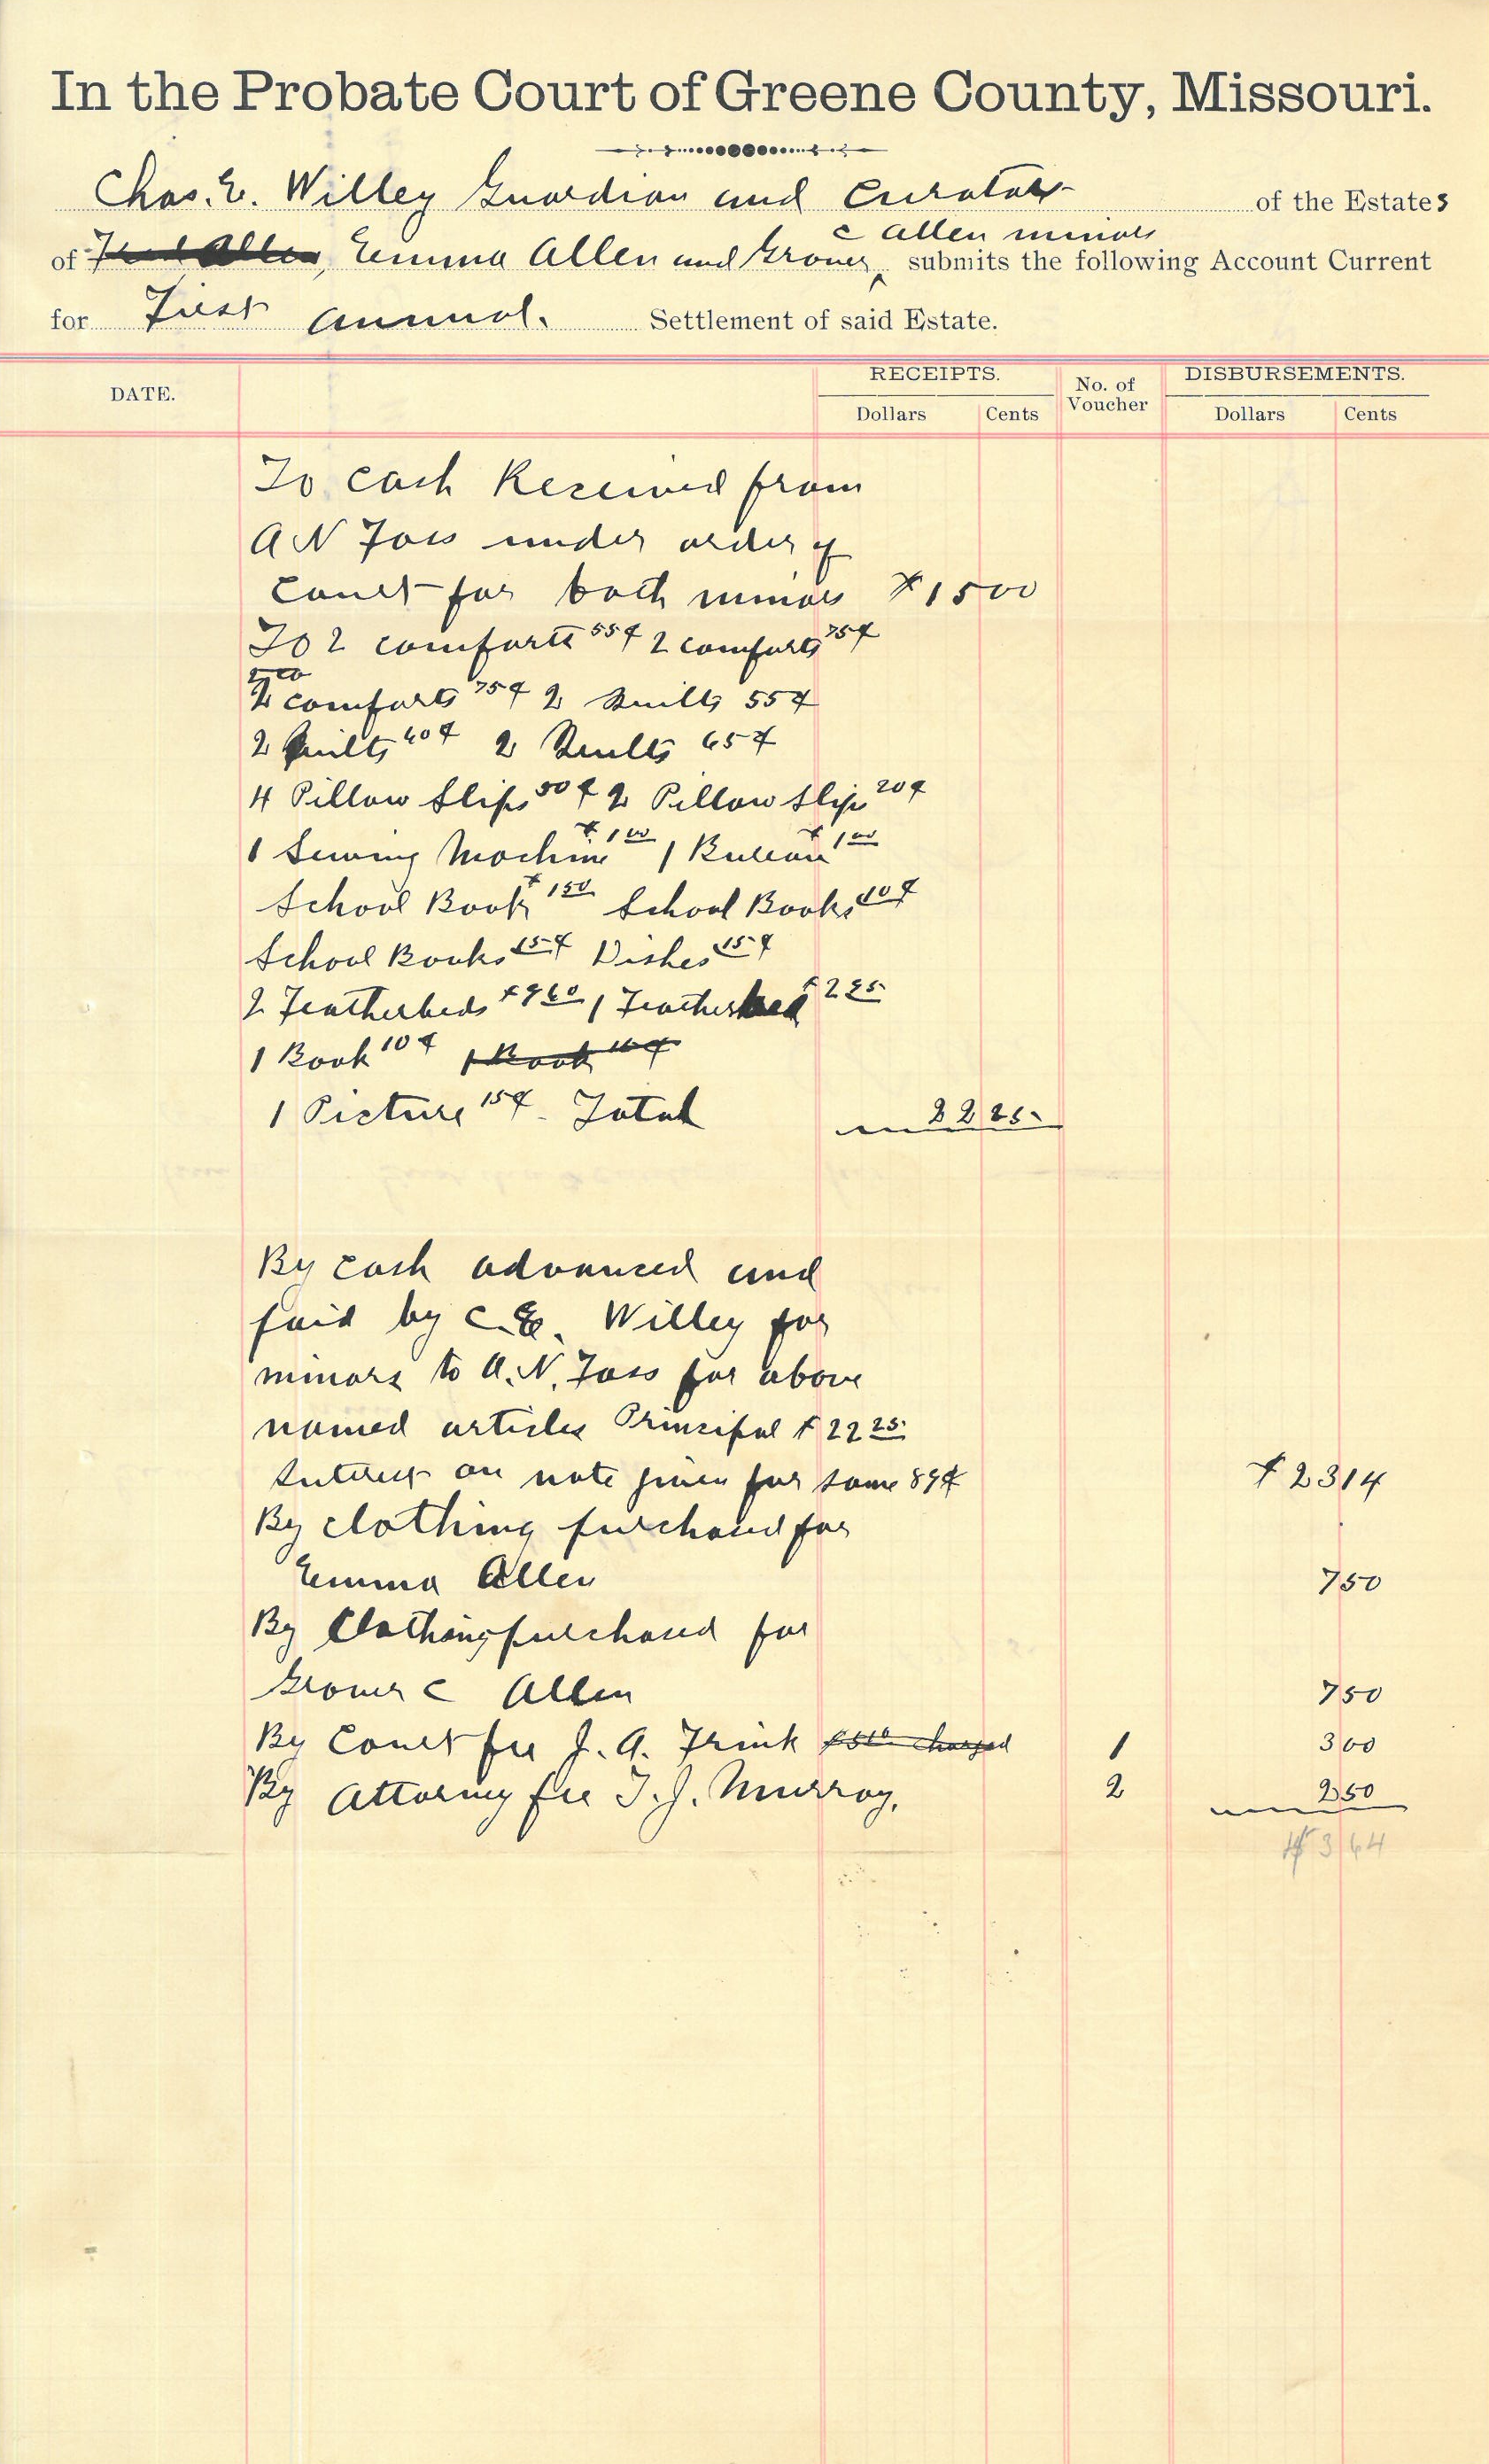 In the Probate Court of Greene County, Missouri.
Chas. E. Willey Guardian and Curator of the Estates
c Allen minors
of Fred Allen, Emma Allen and Grover ^ submits the following Account Current
for First Annual. Settlement of said Estate.
DATE. RECEIPTS. No. of Voucher DISBURSEMENTS.
Dollars Cents Dollars Cents
To cash Received from
A N Foss under order of
Court for both minors $15 00
To 2 comforts 55¢ 2 comforts 75¢
2 comforts 75¢ 2 Quilts 55¢
2 Quilts 60¢ 2 Quilts 65¢
4 Pillow Slips 50¢ 2 Pillow Slips 20¢
1 Sewing Machine $1 00 1 Bureau $1 00
School Books $1 50 School Books 40¢
School Books 65¢ Dishes 15¢
2 Featherbeds 1 Featherbed
1 Book 10¢ 1 Book 10¢
1 Picture 15¢ Total 22 25
By cash advanced and
paid by C. E. Willey for
minors to A. N. Foss for above
named articles Principal $22 25
Interest on note given for same 89¢ $23 14
By clothing purchased for
Emma Allen 7 50
By Clothing purchased for
Grover C Allen 7 50
By Court fee J. A. Frink $5 00 charged 1 3 00
By Attorney fee T. J. Murray, 2 2 50
43 64